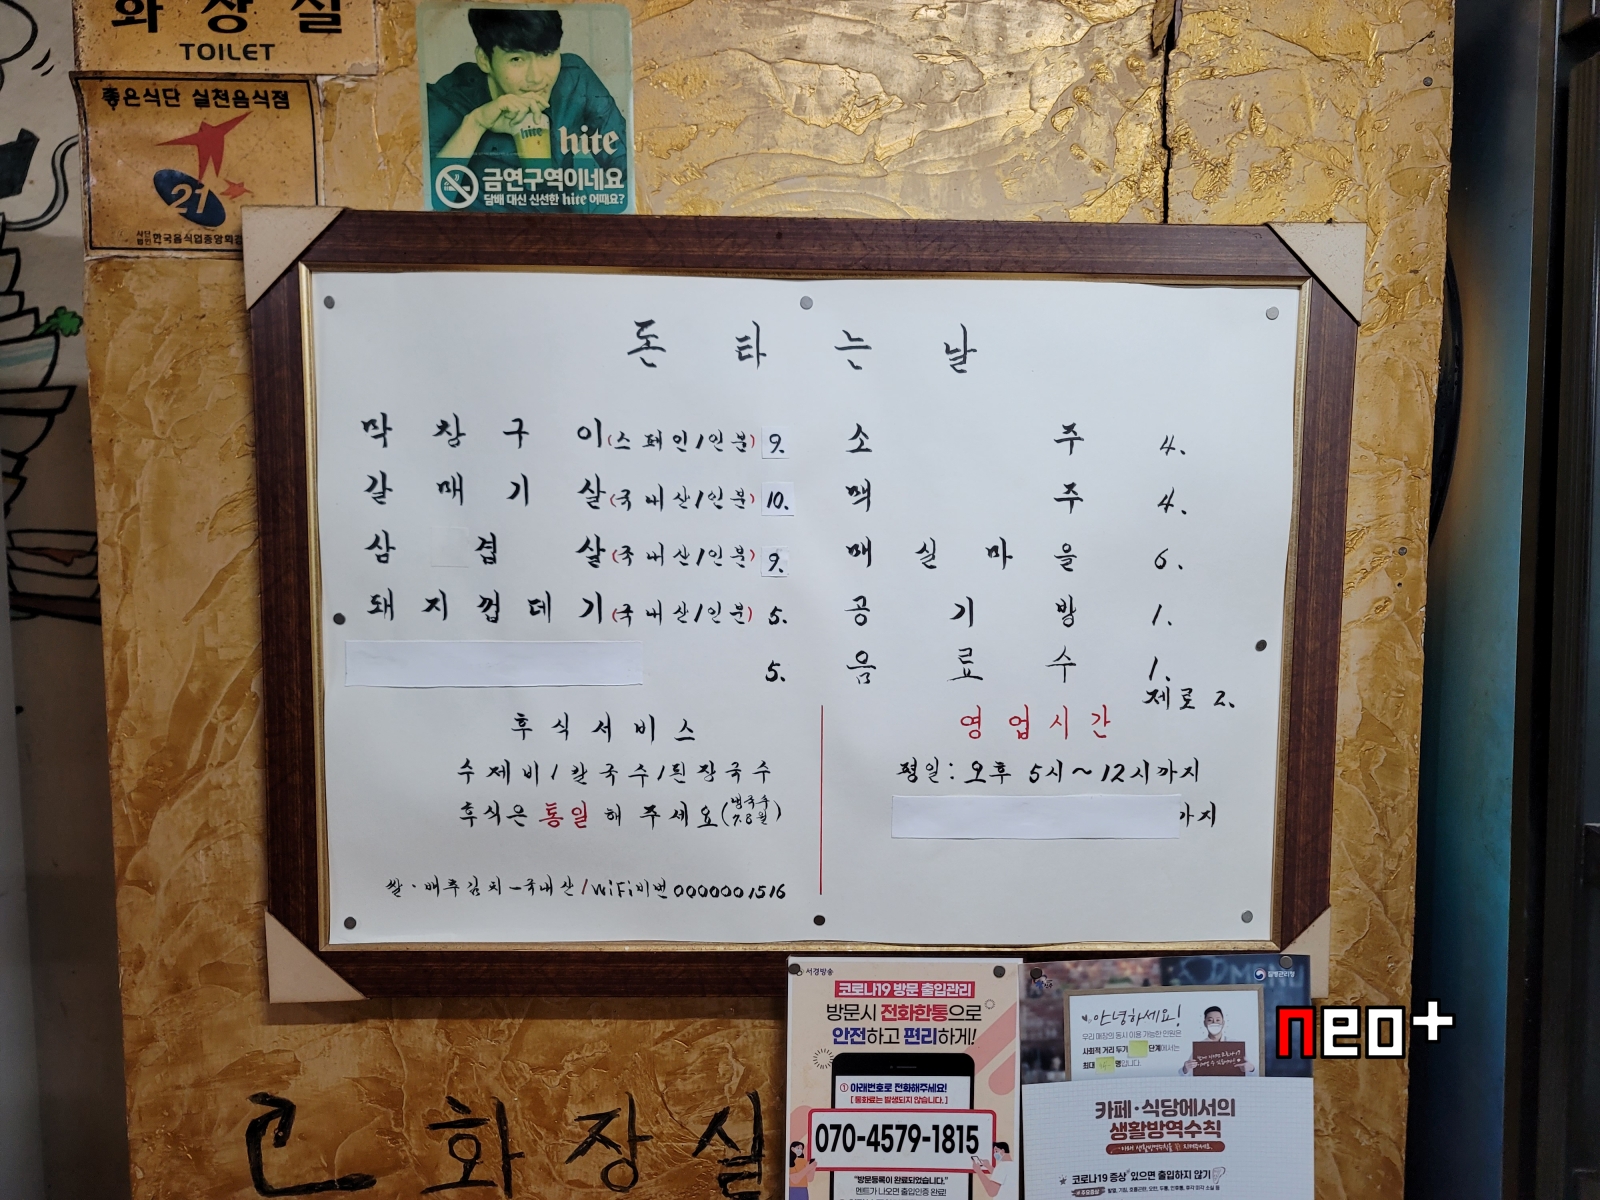 화장실
TOILET
좋은식단 실천음식점
21
사단법인 한국음식업중앙회
hite
hite
금연구역이네요
담배 대신 신선한 hite 어때요?
돈타는날
막창구이(스페인/1인분) 9.
갈매기살(국내산/1인분) 10.
삼겹살(국내산/1인분) 9.
돼지껍데기(국내산/1인분) 5.
5.
소주 4.
맥주 4.
매실마을 6.
공기밥 1.
음료수 1.
제로 2.
후식서비스
수제비/칼국수/된장국수
후식은 통일해 주세요(냉국수 7.8월)
쌀·배추김치-국내산/WiFi비번0000001516
영업시간
평일: 오후 5시~12시까지
까지
화장실
서경방송
코로나19 방문 출입관리
방문시 전화한통으로
안전하고 편리하게!
① 아래번호로 전화해주세요!
[ 통화료는 발생되지 않습니다. ]
070-4579-1815
"방문등록이 완료되었습니다."
멘트가 나오면 출입인증 완료!
질병관리청
안녕하세요!
우리 매장의 동시 이용 가능한 인원은
사회적 거리 두기 단계에서는
최대 명입니다.
카페·식당에서의
생활방역수칙
코로나19 증상 있으면 출입하지 않기
neo+